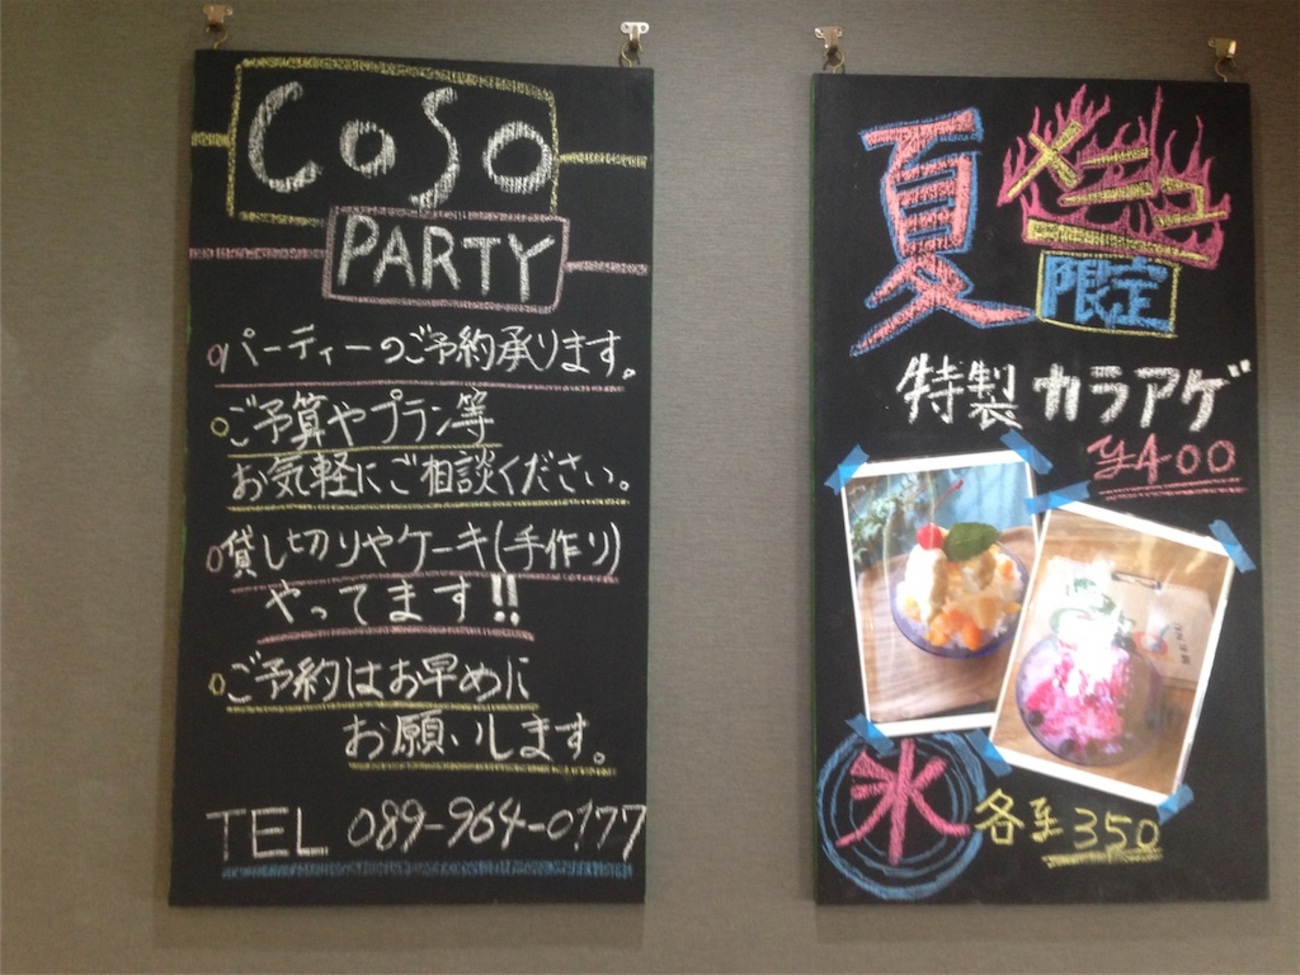 CoSo
PARTY
パーティーのご予約承ります。
ご予算やプラン等
お気軽にご相談ください。
貸し切りやケーキ(手作り)
やってます!!
ご予約はお早めに
お願いします。
TEL 089-964-0177
夏メニュー
限定
特製カラアゲ
¥400
MENU
氷 各¥350